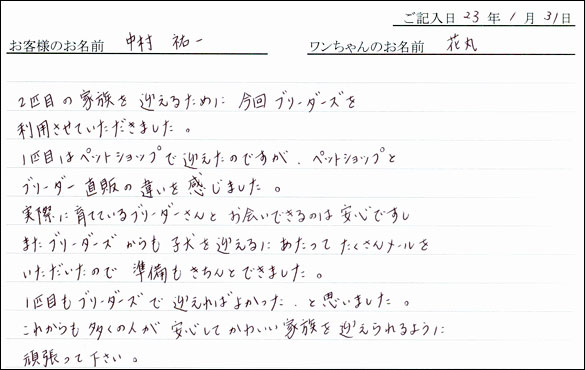 ご記入日 23 年 1 月 31 日
お客様のお名前 中村 祐一 ワンちゃんのお名前 花丸
2匹目の家族を迎えるために今回ブリーダーズを
利用させていただきました。
1匹目はペットショップで迎えたのですが、ペットショップと
ブリーダー直販の違いを感じました。
実際に育てているブリーダーさんとお会いできるのは安心ですし
またブリーダーズからも子犬を迎えるにあたってたくさんメールを
いただいたので準備もきちんとできました。
1匹目もブリーダーズで迎えればよかった、と思いました。
これからも多くの人が安心してかわいい家族を迎えられるように
頑張って下さい。